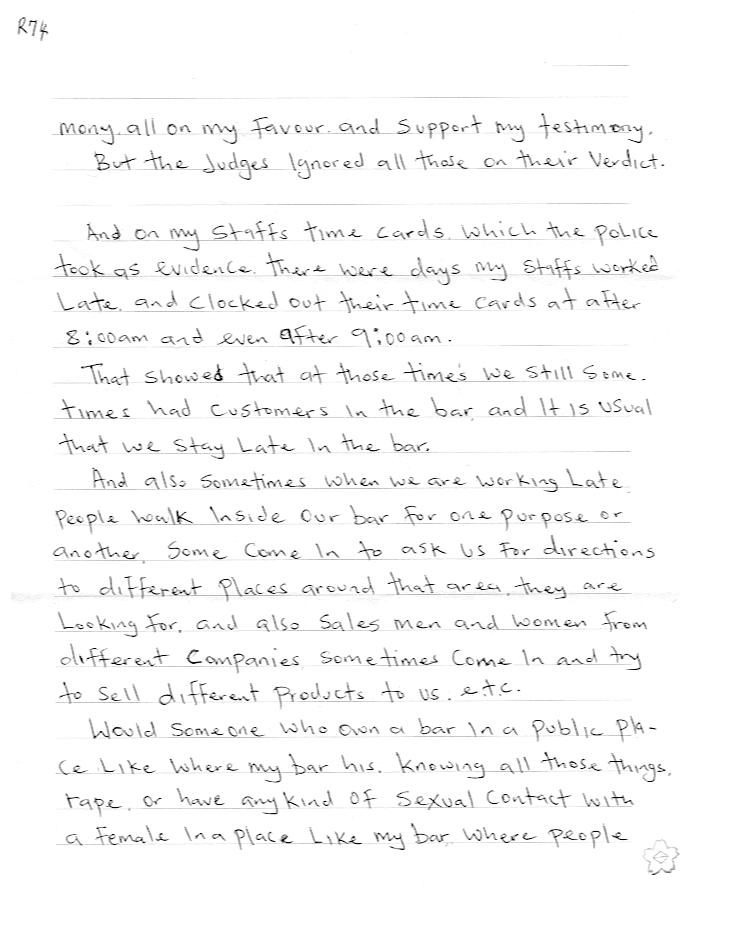 R74
mony. all on my Favour. and Support my testimony.
But the Judges Ignored all those on their Verdict.
And on my Staffs time cards. which the police
took as evidence. there were days my Staffs worked
Late. and clocked out their time cards at after
8:00am and even after 9:00am.
That showed that at those time's we still Some-
times had customers In the bar, and It is usual
that we stay Late In the bar.
And also Sometimes when we are working Late
People walk Inside Our bar for one purpose or
another, Some Come In to ask us For directions
to different Places around that area, they are
Looking for, and also Sales men and women from
different Companies, Sometimes Come In and try
to sell different Products to us. e.t.c.
Would Someone who own a bar In a public pla-
ce Like where my bar his. knowing all those things,
rape, or have any kind of Sexual Contact with
a female In a place Like my bar, where people